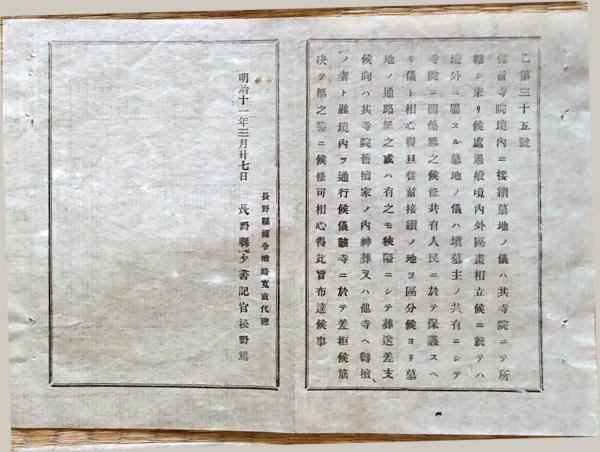 乙第三十五號
從前寺院境內ニ接續墓地ノ儀ハ其寺院ニテ所
轄シ來リ候處過般境內外區畫相立候ニ就テハ
境外ニ屬スル墓地ノ儀ハ墳墓主ノ共有ニシテ
寺院ニ關係無之候條共有人民ニ於テ保護スヘ
キ儀ト相心得且從前接續ノ地ヲ區分候ヨリ墓
地ノ通路無之或ハ有之モ狹隘ニシテ葬送差支
候向ハ其寺院舊檀家ノ內神葬又ハ他寺ヘ轉檀
ノ者ト雖境內ヲ通行候儀該寺ニ於テ差拒候筋
決テ無之筈ニ候條可相心得此旨布達候事
長野縣權令楢崎寬直代理
明治十一年三月廿七日 長野縣少書記官松野篤